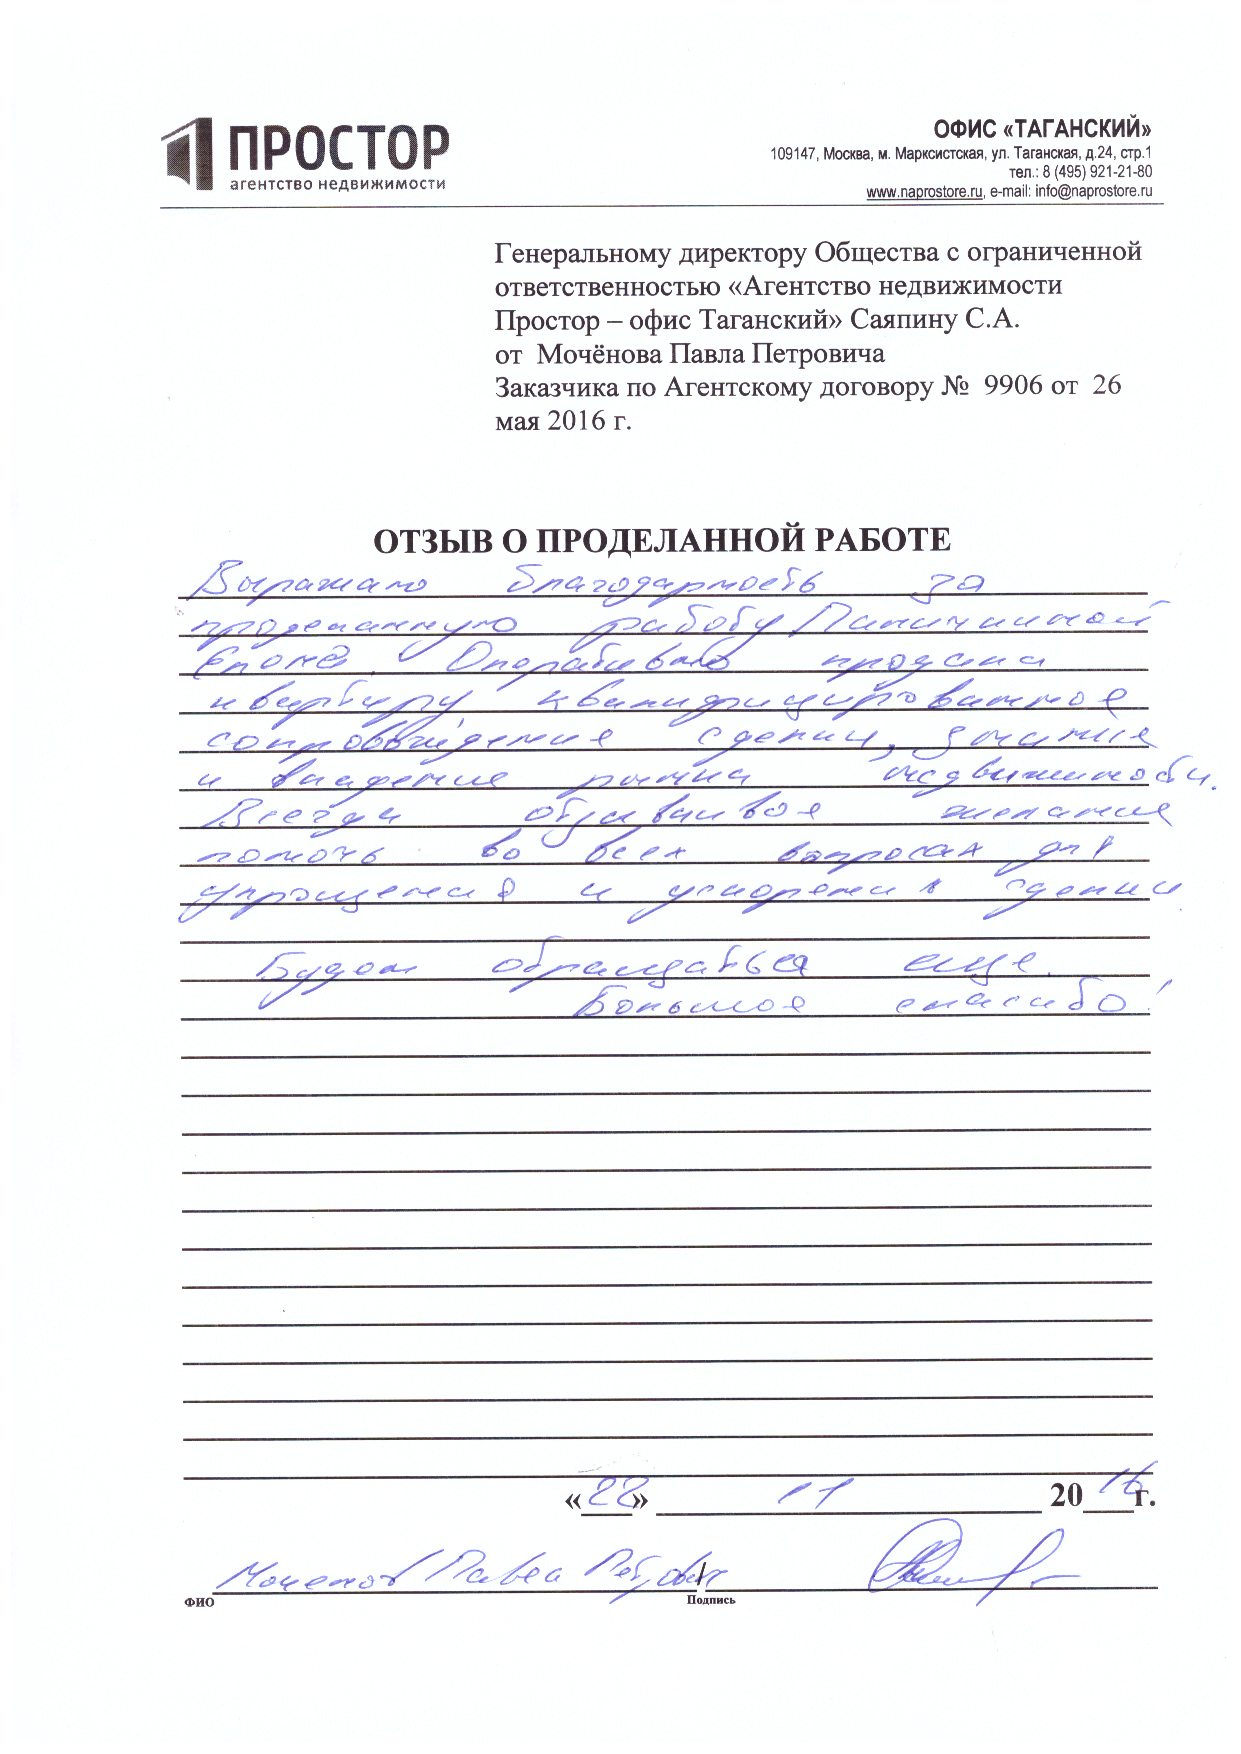 ПРОСТОР
агентство недвижимости
ОФИС «ТАГАНСКИЙ»
109147, Москва, м. Марксистская, ул. Таганская, д.24, стр.1
тел.: 8 (495) 921-21-80
www.naprostore.ru, e-mail: info@naprostore.ru
Генеральному директору Общества с ограниченной
ответственностью «Агентство недвижимости
Простор – офис Таганский» Саяпину С.А.
от Мочёнова Павла Петровича
Заказчика по Агентскому договору № 9906 от 26
мая 2016 г.
ОТЗЫВ О ПРОДЕЛАННОЙ РАБОТЕ
Выражаю благодарность за
проделанную работу
Елене. Оперативно продана
квартира, квалифицированное
сопровождение сделки, знание
и владение рынка недвижимости.
Всегда отзывчивое желание
помочь во всех вопросах для
упрощения и ускорения сделки
Будем обращаться еще.
Большое спасибо!
«22» 11 2016г.
Моченов Павел Петрович /
ФИО Подпись